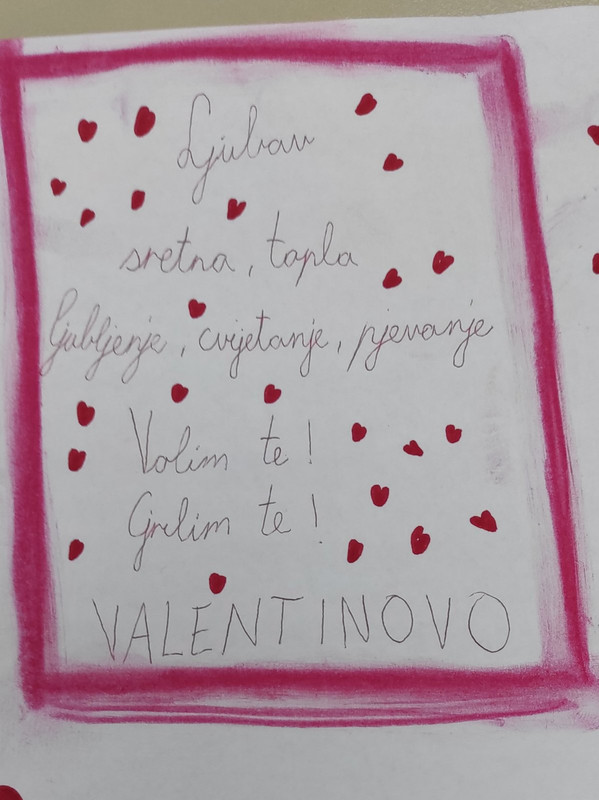 Ljubav
sretna, topla
ljubljenje, cvijetanje, pjevanje
Volim te!
Grlim te!
VALENTINOVO